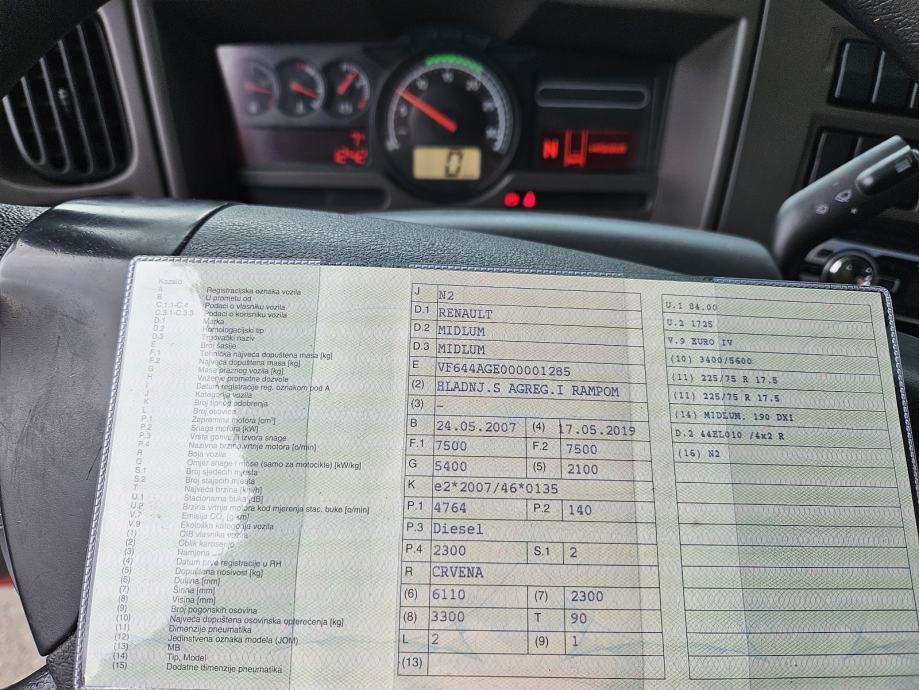 7
0
N
Kazalo:
A Registracijska oznaka vozila
B U prometu od
C.1.1-C.4 Podaci o vlasniku vozila
C.3.1-C.3.3 Podaci o korisniku vozila
D.1 Marka
D.2 Homologacijski tip
D.3 Trgovački naziv
E Broj šasije
F.1 Tehnička najveća dopuštena masa [kg]
F.2 Najveća dopuštena masa [kg]
G Masa praznog vozila [kg]
H Važenje prometne dozvole
I Datum registracije reg. oznakom pod A
J Kategorija vozila
K Broj tipnog odobrenja
L Broj osovina
P.1 Zapremina motora [cm³]
P.2 Snaga motora [kW]
P.3 Vrsta goriva ili izvora snage
P.4 Nazivna brzina vrtnje motora [o/min]
R Boja vozila
Q Omjer snage i mase (samo za motocikle) [kW/kg]
S.1 Broj sjedećih mjesta
S.2 Broj stajaćih mjesta
T Najveća brzina [km/h]
U.1 Stacionarna buka [dB]
U.2 Brzina vrtnje motora kod mjerenja stac. buke [o/min]
V.7 Emisija CO₂ [g/km]
V.9 Ekološka kategorija vozila
(1) OIB vlasnika vozila
(2) Oblik karoserije
(3) Namjena
(4) Datum prve registracije u RH
(5) Dopuštena nosivost [kg]
(6) Duljina [mm]
(7) Širina [mm]
(8) Visina [mm]
(9) Broj pogonskih osovina
(10) Najveća dopuštena osovinska opterećenja [kg]
(11) Dimenzije pneumatika
(12) Jedinstvena oznaka modela (JOM)
(13) MB
(14) Tip, Model
(15) Dodatne dimenzije pneumatika
J N2
D.1 RENAULT
D.2 MIDLUM
D.3 MIDLUM
E VF644AGE000001285
(2) HLADNJ.S AGREG.I RAMPOM
(3) –
B 24.05.2007 (4) 17.05.2019
F.1 7500 F.2 7500
G 5400 (5) 2100
K e2*2007/46*0135
P.1 4764 P.2 140
P.3 Diesel
P.4 2300 S.1 2
R CRVENA
(6) 6110 (7) 2300
(8) 3300 T 90
L 2 (9) 1
(13)
U.1 84.00
U.2 1725
V.9 EURO IV
(10) 3400/5600
(11) 225/75 R 17.5
(11) 225/75 R 17.5
(14) MIDLUM, 190 DXI
D.2 44EL010 /4x2 R
(16) N2